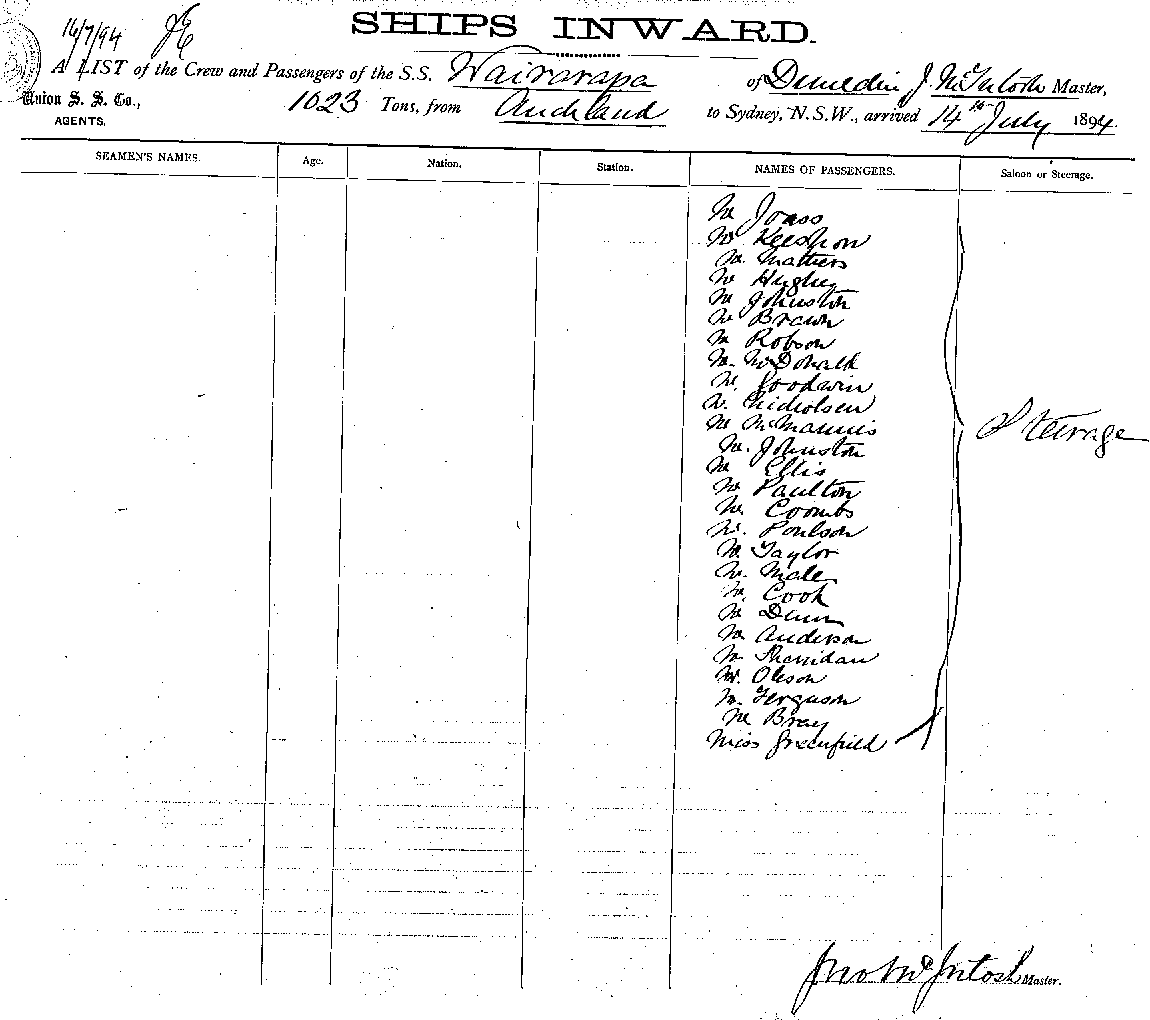 16/7/94
SHIPS INWARD.
A LIST of the Crew and Passengers of the S.S. Wairarapa of Dunedin J. McIntosh Master,
Union S. S. Co.,
AGENTS.
1023 Tons, from Auckland to Sydney, N.S.W., arrived 14th July 1894.
SEAMEN'S NAMES. Age. Nation. Station. NAMES OF PASSENGERS. Saloon or Steerage.
Mr Joass
Mr
Mr Mathers
Mr Hughes
Mr Johnston
Mr Brown
Mr Robson
Mr McDonald
Mr Goodwin
Mr Nicholsen
Mr McMannis
Steerage
Mr Johnston
Mr Ellis
Mr Paulton
Mr Coombs
Mr Poulson
Mr Taylor
Mr Male
Mr Cook
Mr Dunn
Mr Anderson
Mr Sherridan
Mr Oleson
Mr Ferguson
Mr Bray
Miss Greenfield
Jno McIntosh Master.